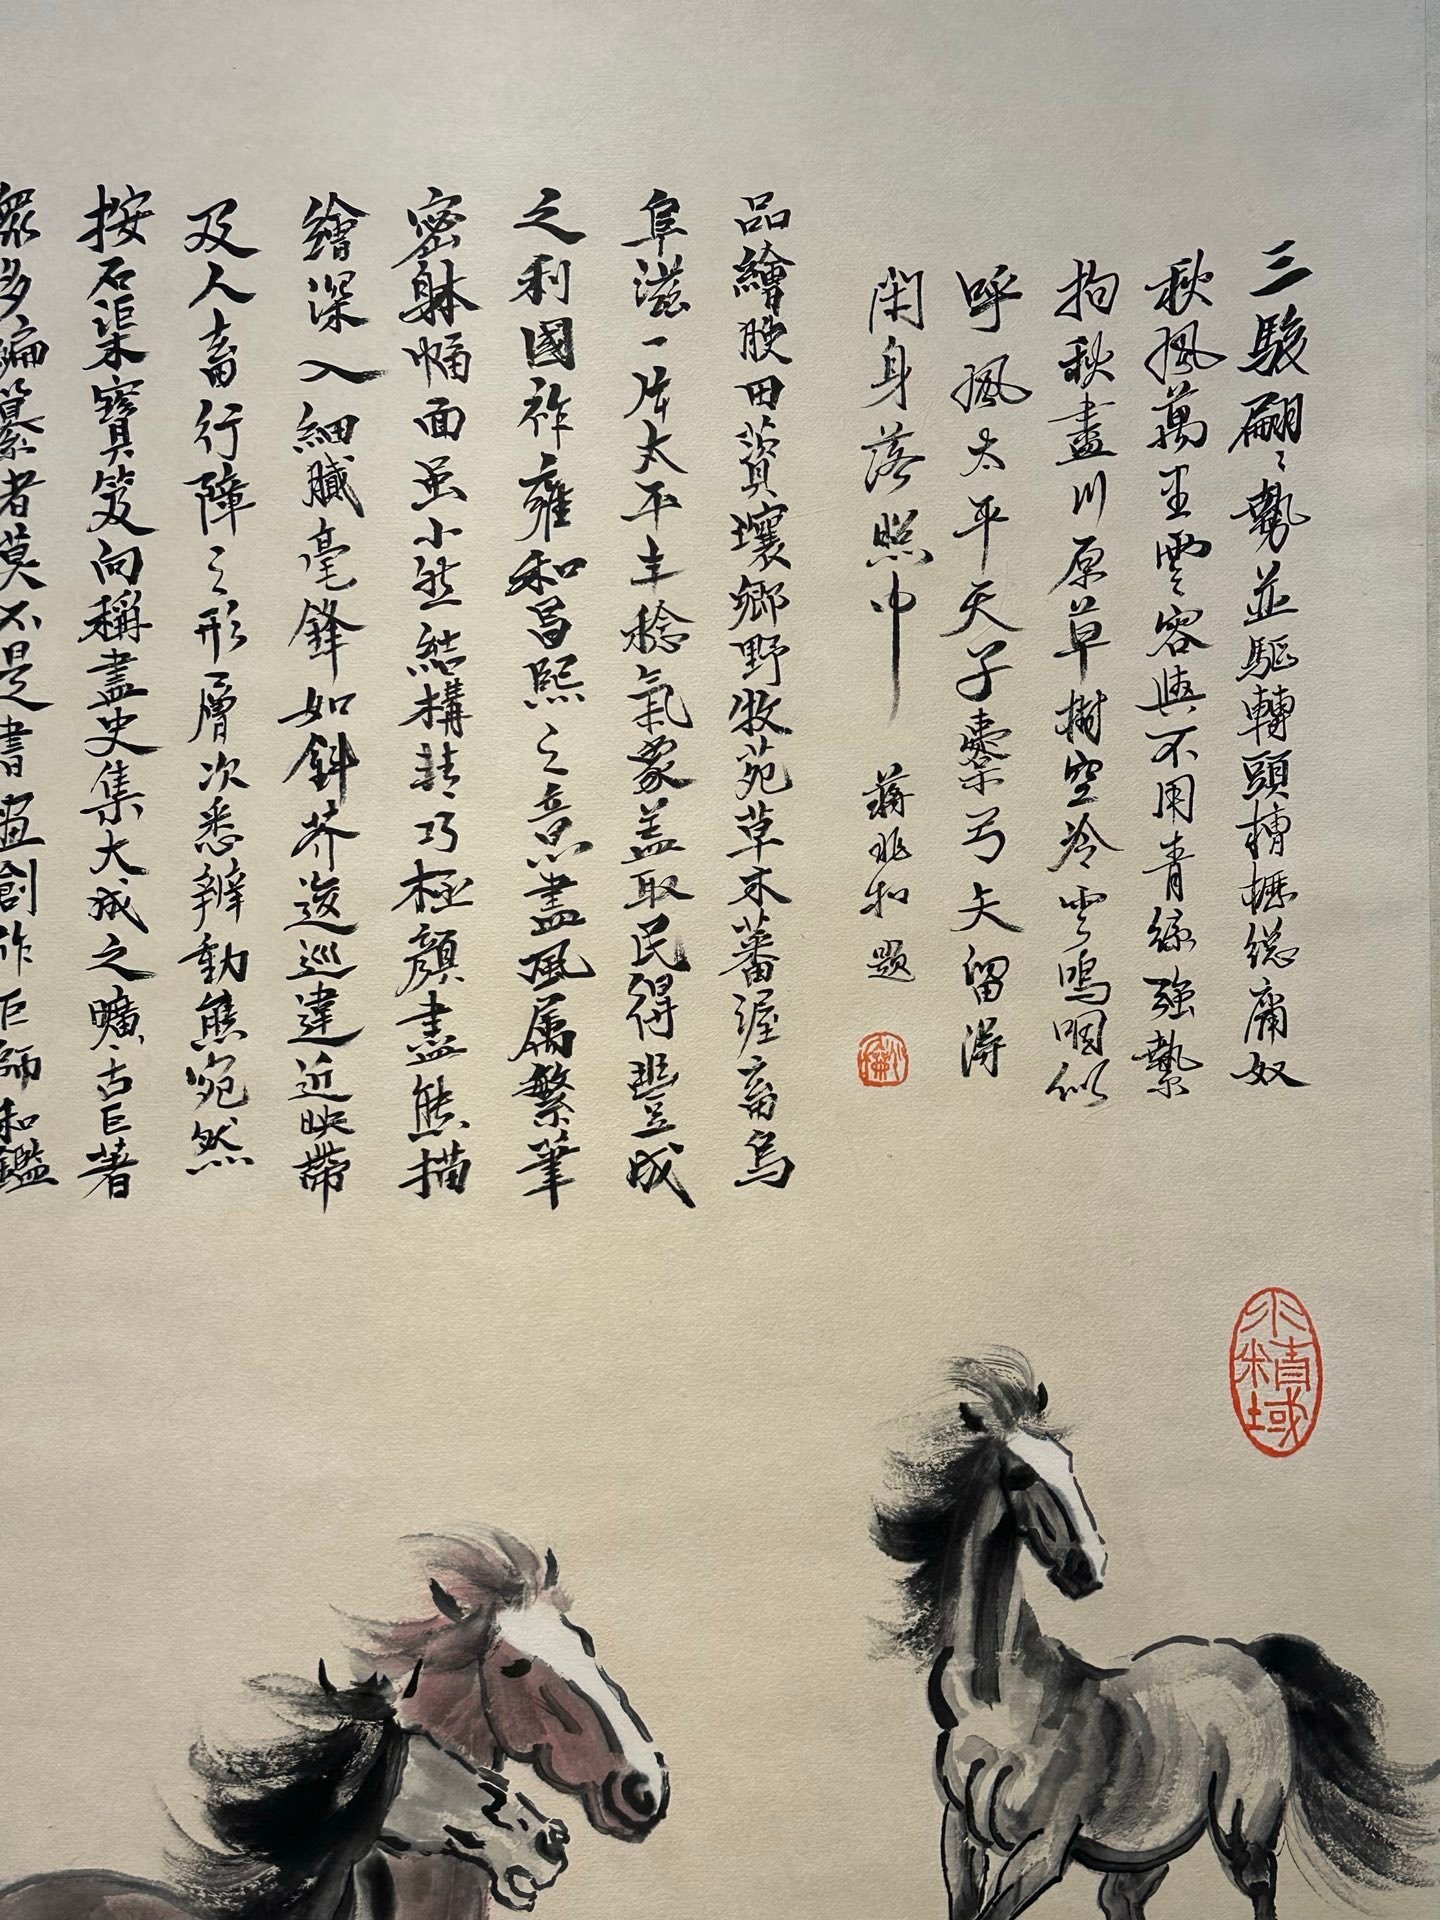 三駿翩々勢並驅轉頭槽櫪總庸奴
秋風萬里雲容與不用青絲強縶
拘秋盡川原草樹空冷雲鳴咽似
呼風太平天子櫜弓矢留得
閑身落照中
蔣兆和題
品繪腴田蕡壤鄉野牧苑草木蕃渥畜鳥
阜滋一片太平丰稔氣象盖取民得豐成
之利國祚雍和昌熙之意盡風属繁筆
密躰幅面虽小然結構精巧極顏盡態描
繪深入細膩毫鋒如針芥逡巡違近映帶
及人畜行障之形層次悉辨動態宛然
按石渠寳笈向稱盡史集大成之曠古巨著
眾多编纂者莫不是書画創作巨師和鑑
精域